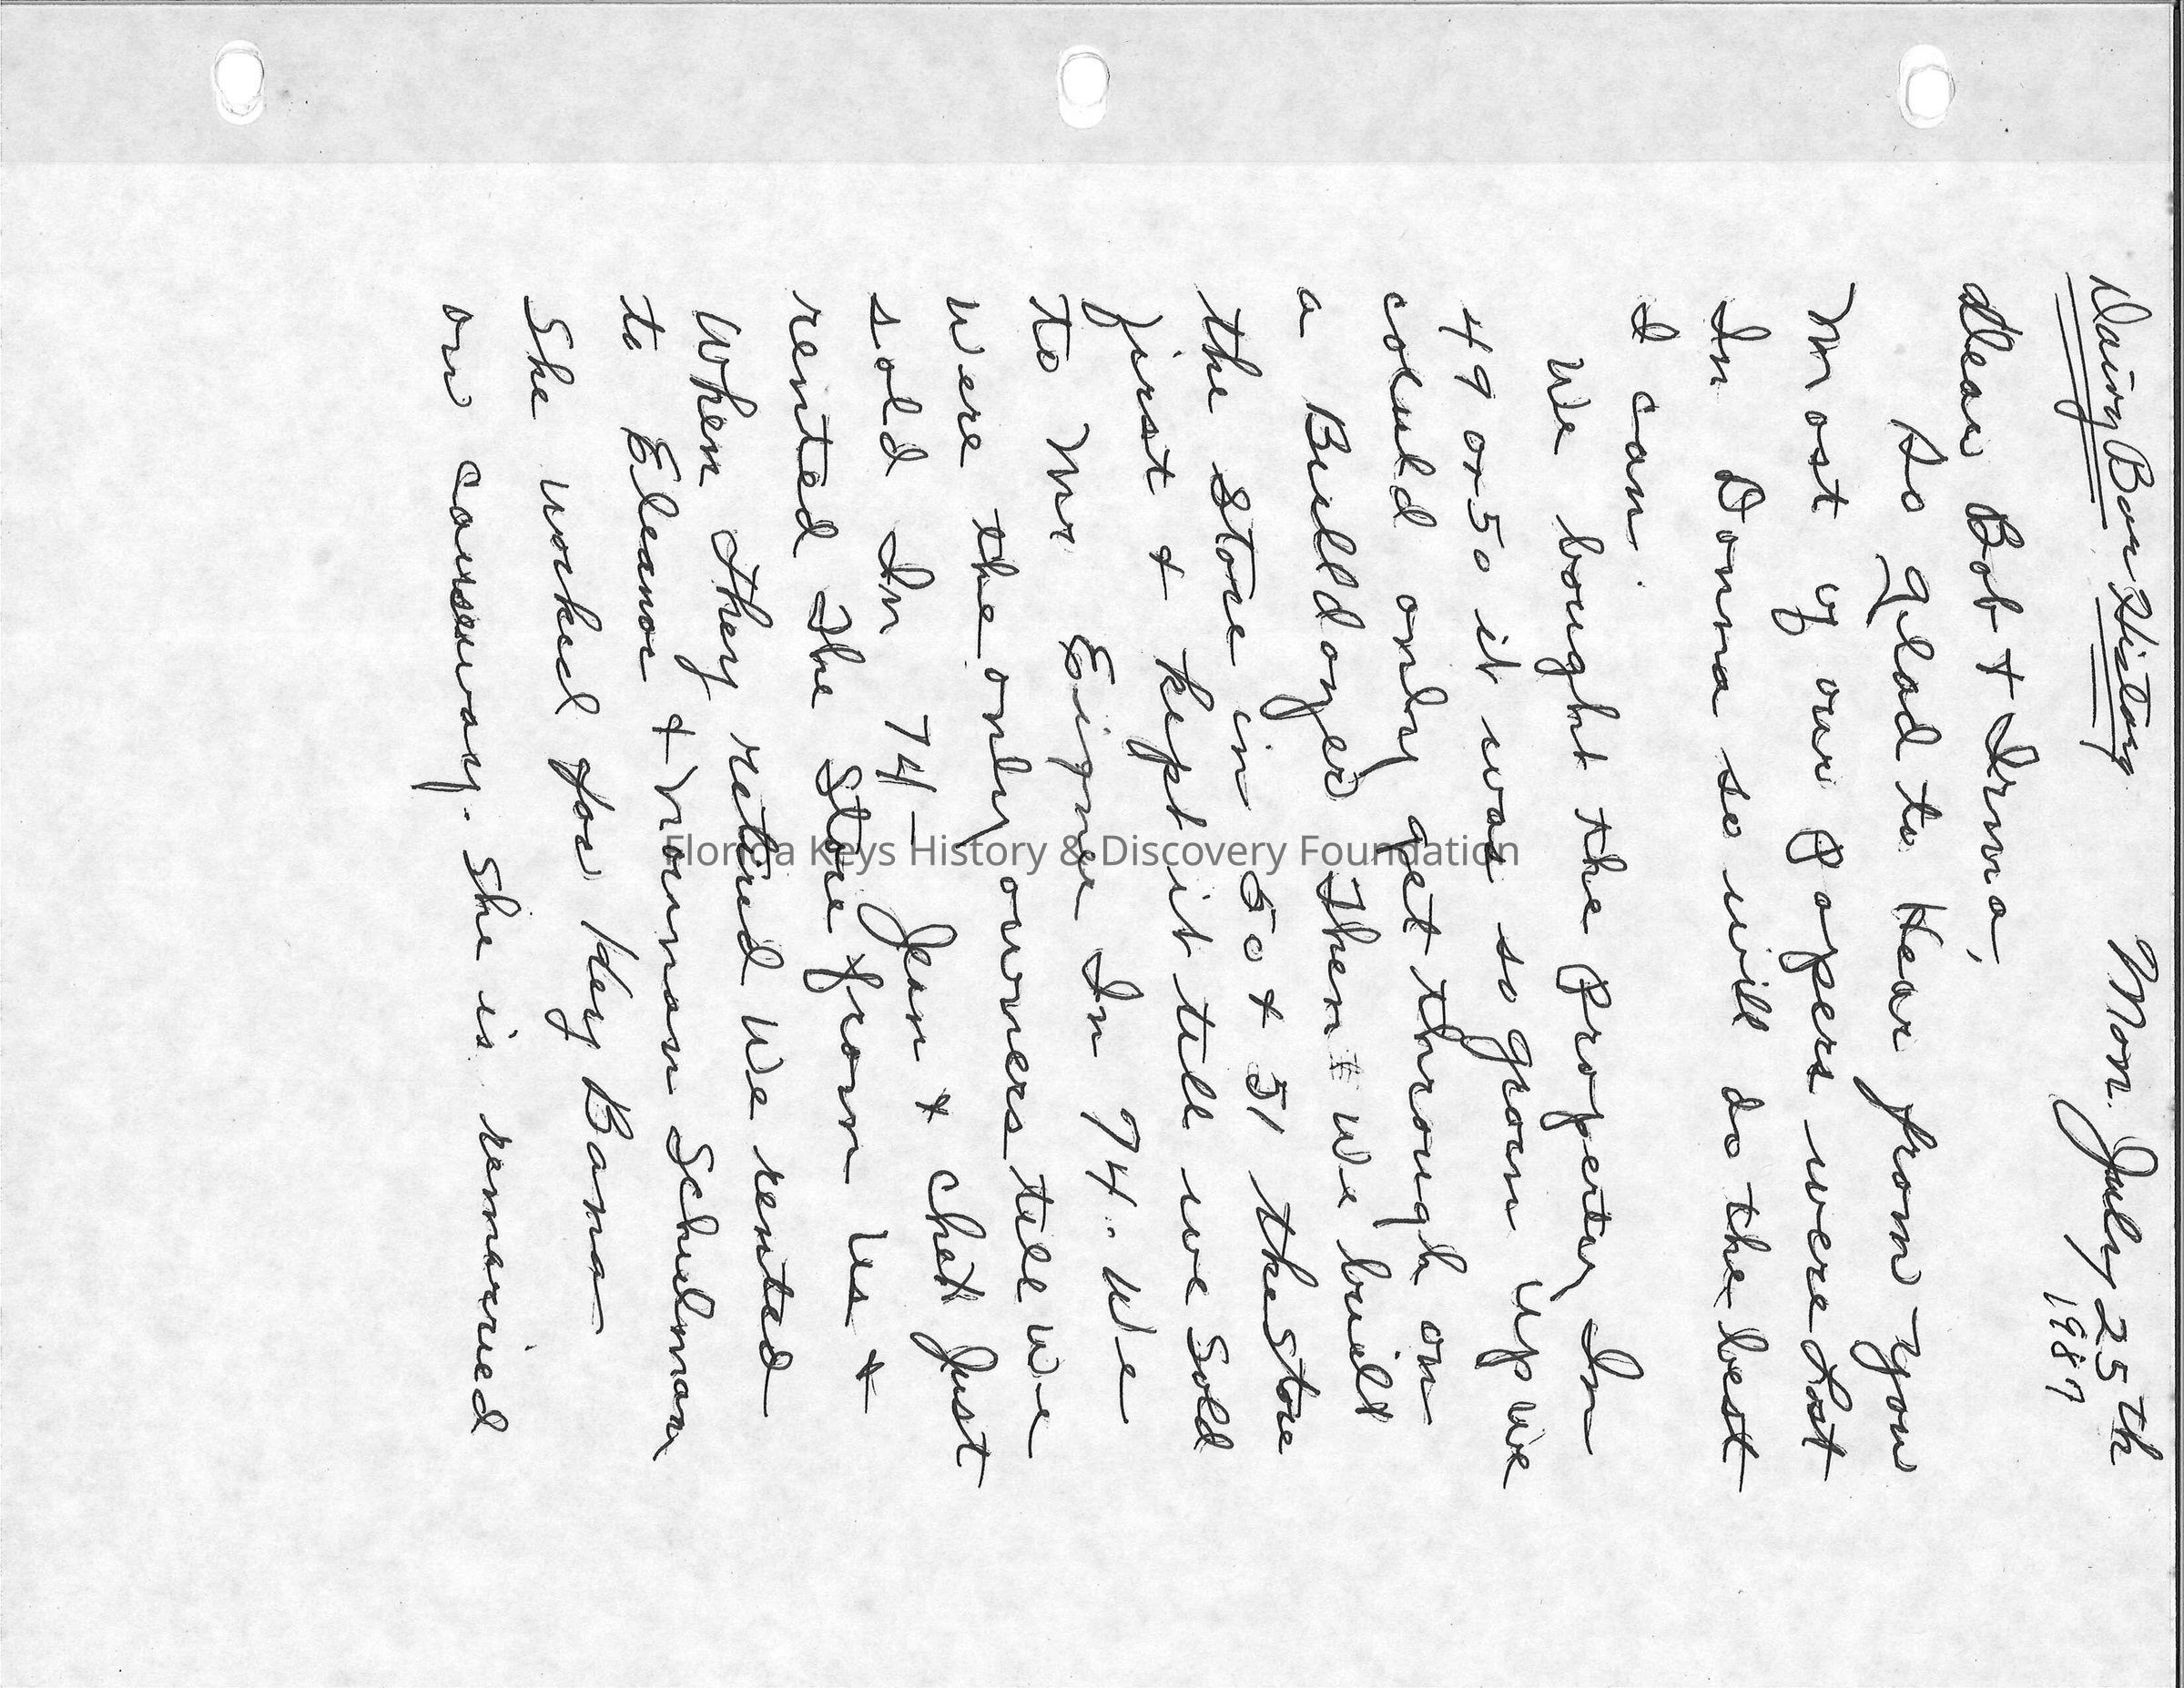 Dairy Bar History
Mon. July 25th
1987
Dear Bob & Irma,
So glad to Hear from you
Most of our Papers were Lost
In Donna so will do the best
I can.
We bought the Property In
49 or 50 it was so grown up we
could only get through on
a Bulldozer Then we built
the Store in 50 & 51 the Store
first & kept it till we Sold
to Mr Eigner In 74. We
were the only owners till we
sold In 74 - Jean & Chet Just
rented The Store from us &
When they retired we rented
to Eleanor & Norman Schulman
She worked for Key Bana
on causeway. She is remarried
Florida Keys History & Discovery Foundation